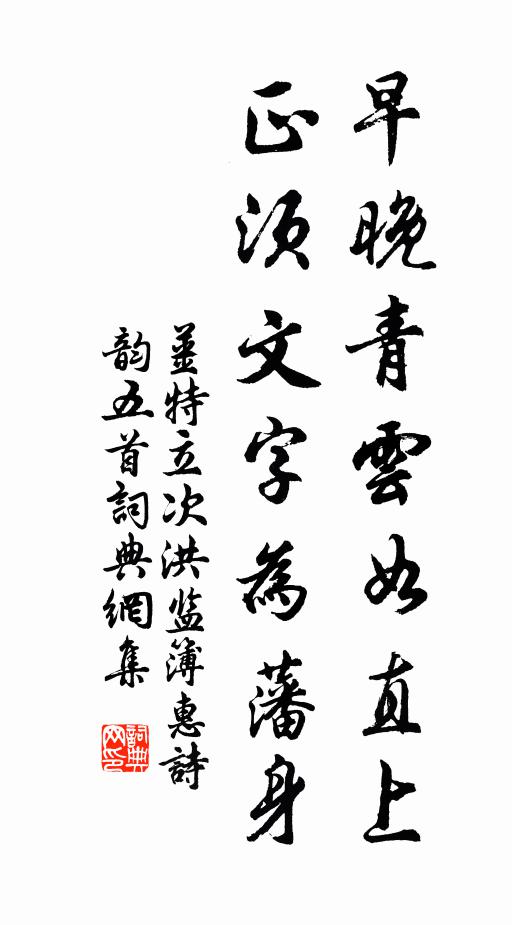 早晚青雲如直上
正須文字為藩身
姜特立次洪监簿惠詩
韵五首詞典網集
詞典网印